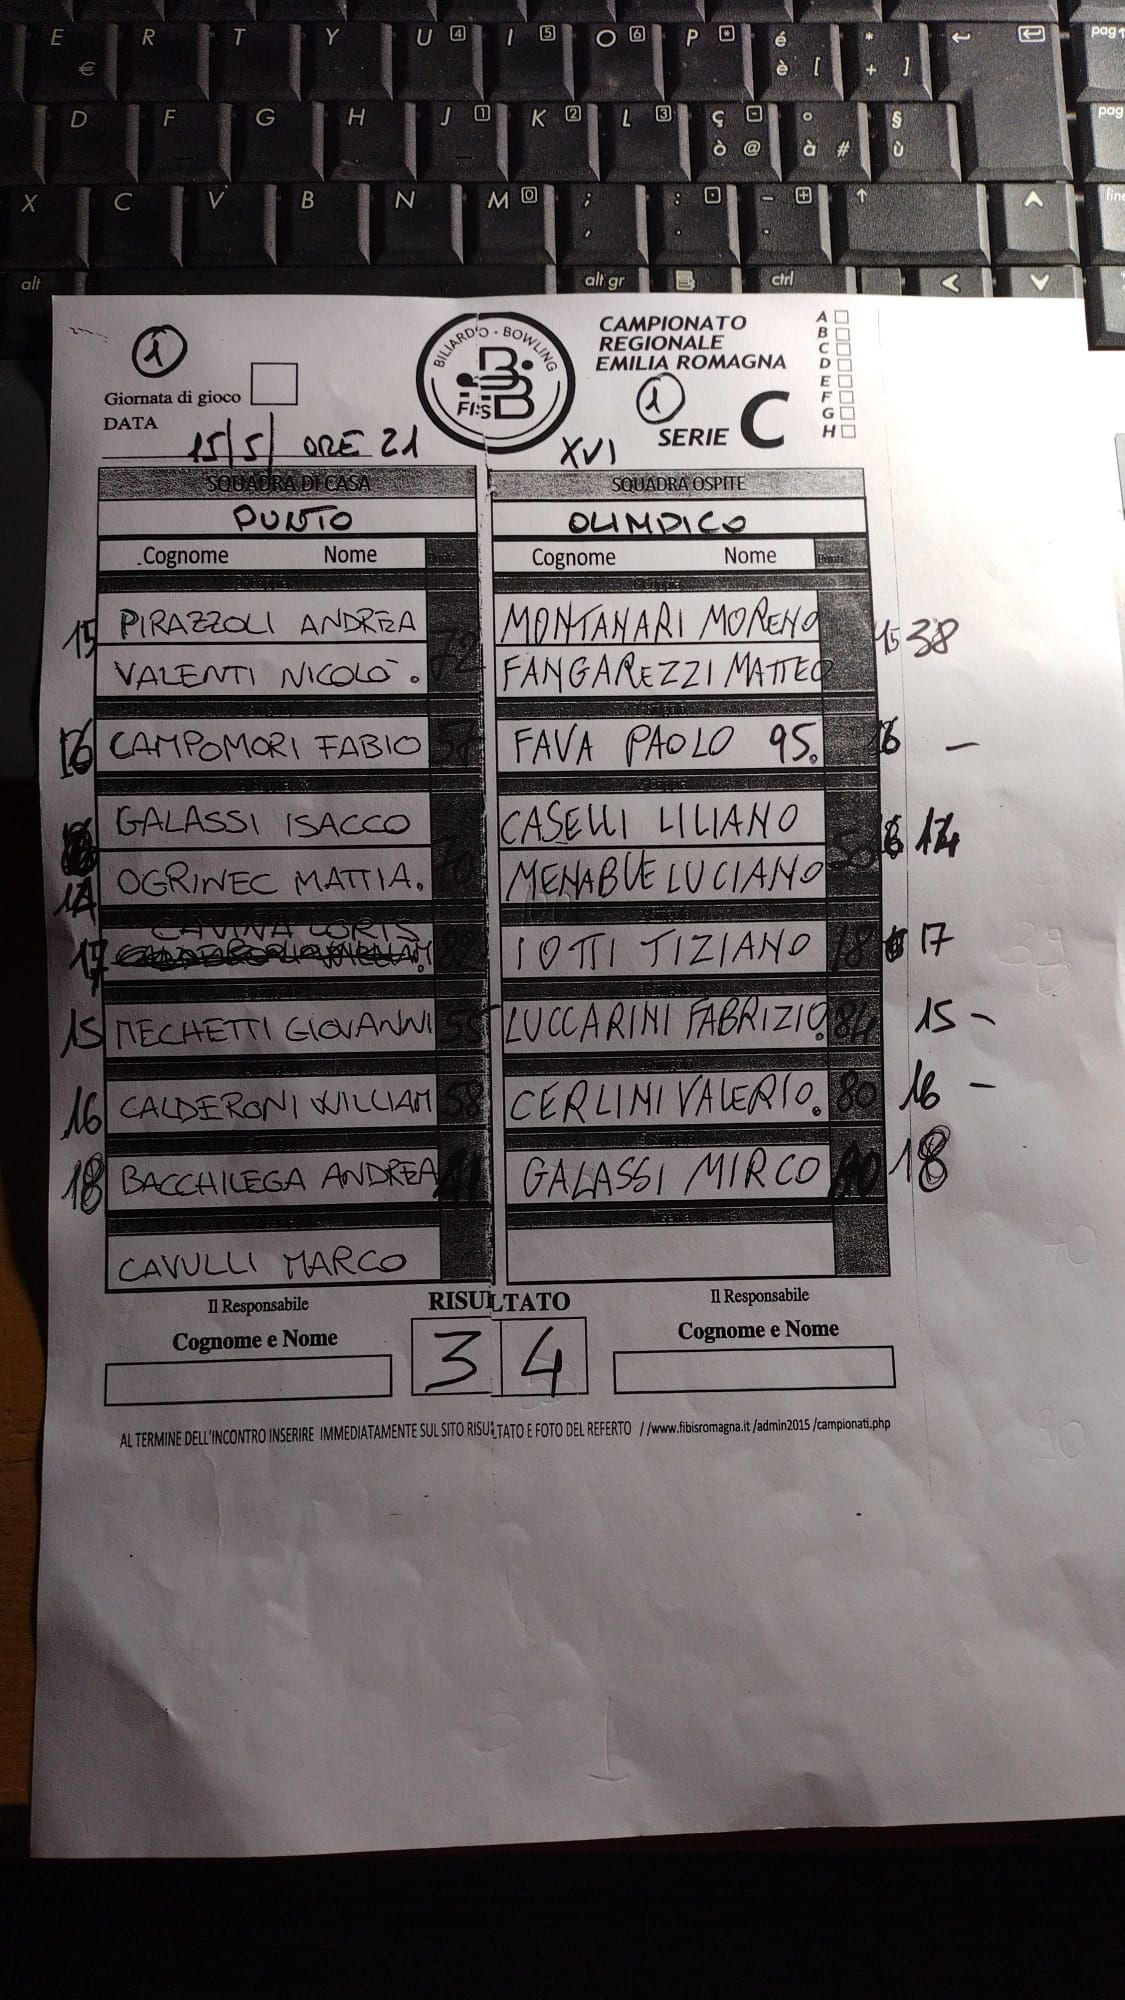 E R T Y U 4 I 5 O 6 P * é * pag
€ è [ + ]
D F G H J 1 K 2 L 3 ç - ° § pag
ò @ à # ù
X C V B N M 0 ; : . - +
, . -
alt alt gr ctrl
1
Giornata di gioco
DATA
15/5/ ORE 21
BILIARDO - BOWLING
FISB
CAMPIONATO
REGIONALE
EMILIA ROMAGNA
1
SERIE C
XVI
A
B
C
D
E
F
G
H
SQUADRA DI CASA SQUADRA OSPITE
PUNTO OLIMPICO
Cognome Nome Cognome Nome
15 PIRAZZOLI ANDREA MONTANARI MORENO 15 38
VALENTI NICOLÒ . 72 FANGAREZZI MATTEO
16 CAMPOMORI FABIO FAVA PAOLO 95. 16 -
GALASSI ISACCO CASELLI LILIANO
14 OGRINEC MATTIA. 70 MENABUE LUCIANO 14
CAVINA LORIS
17 IOTTI TIZIANO 17
15 MECHETTI GIOVANNI 55 LUCCARINI FABRIZIO. 84 15 -
16 CALDERONI WILLIAM 58 CERLINI VALERIO. 80 16 -
18 BACCHILEGA ANDREA GALASSI MIRCO 18
CAVULLI MARCO
Il Responsabile RISULTATO Il Responsabile
Cognome e Nome 3 4 Cognome e Nome
AL TERMINE DELL'INCONTRO INSERIRE IMMEDIATAMENTE SUL SITO RISULTATO E FOTO DEL REFERTO //www.fibisromagna.it /admin2015 /campionati.php